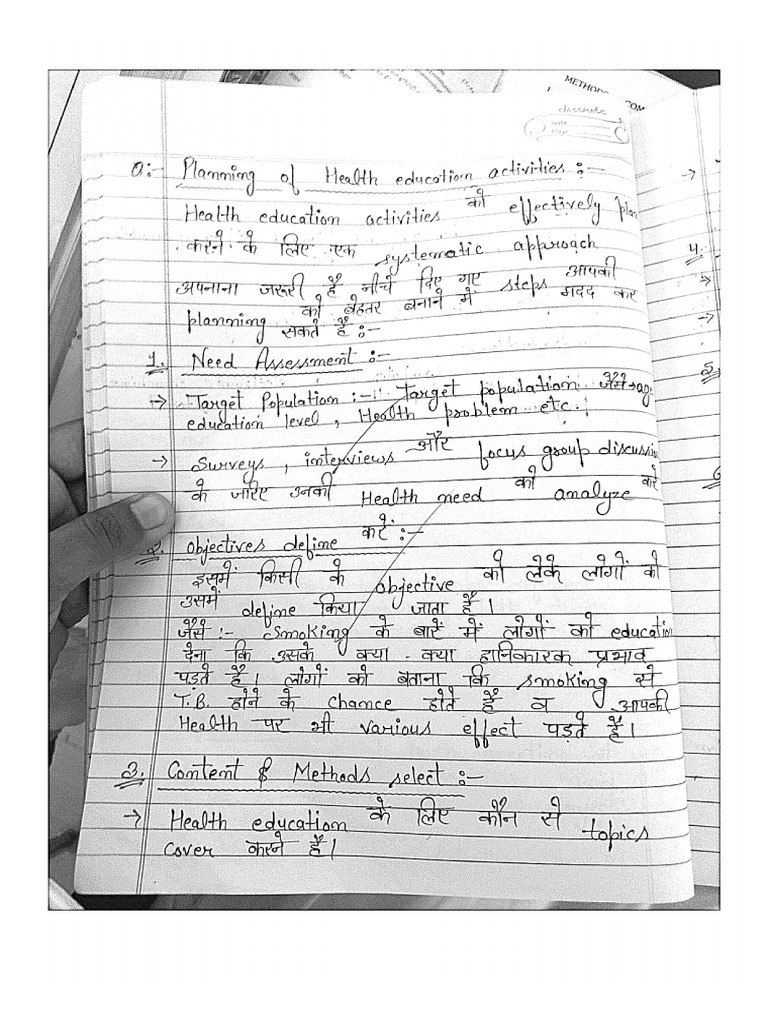 METHODS
COM
classmate
Date
Page
Q:- Planning of Health education activities :-
Health education activities को effectively plan
करने के लिए एक systematic approach
अपनाना जरूरी है नीचे दिए गए steps आपकी
planning को बेहतर बनाने में मदद कर
सकते है :-
1. Need Assessment :-
→ Target Population :- Target population जैसे → age
education level, Health problem etc.।
→ Surveys, interviews और focus group discussion
के जरिए उनकी Health need को analyze करे
2. Objectives define करें :-
इसमें किसी के objective को लेके लोगों को
उसमें define किया जाता है।
जैसे :- Smoking के बारें में लोगों को education
देना कि उसके क्या - क्या हानिकारक प्रभाव
पड़ते है। लोगों को बताना कि smoking से
T.B. होने के chance होते है व आपकी
Health पर भी various effect पड़ते है।
3. Content & Methods select :-
→ Health education के लिए कौन से topics
cover करने है।
→
4.
→
→
5.